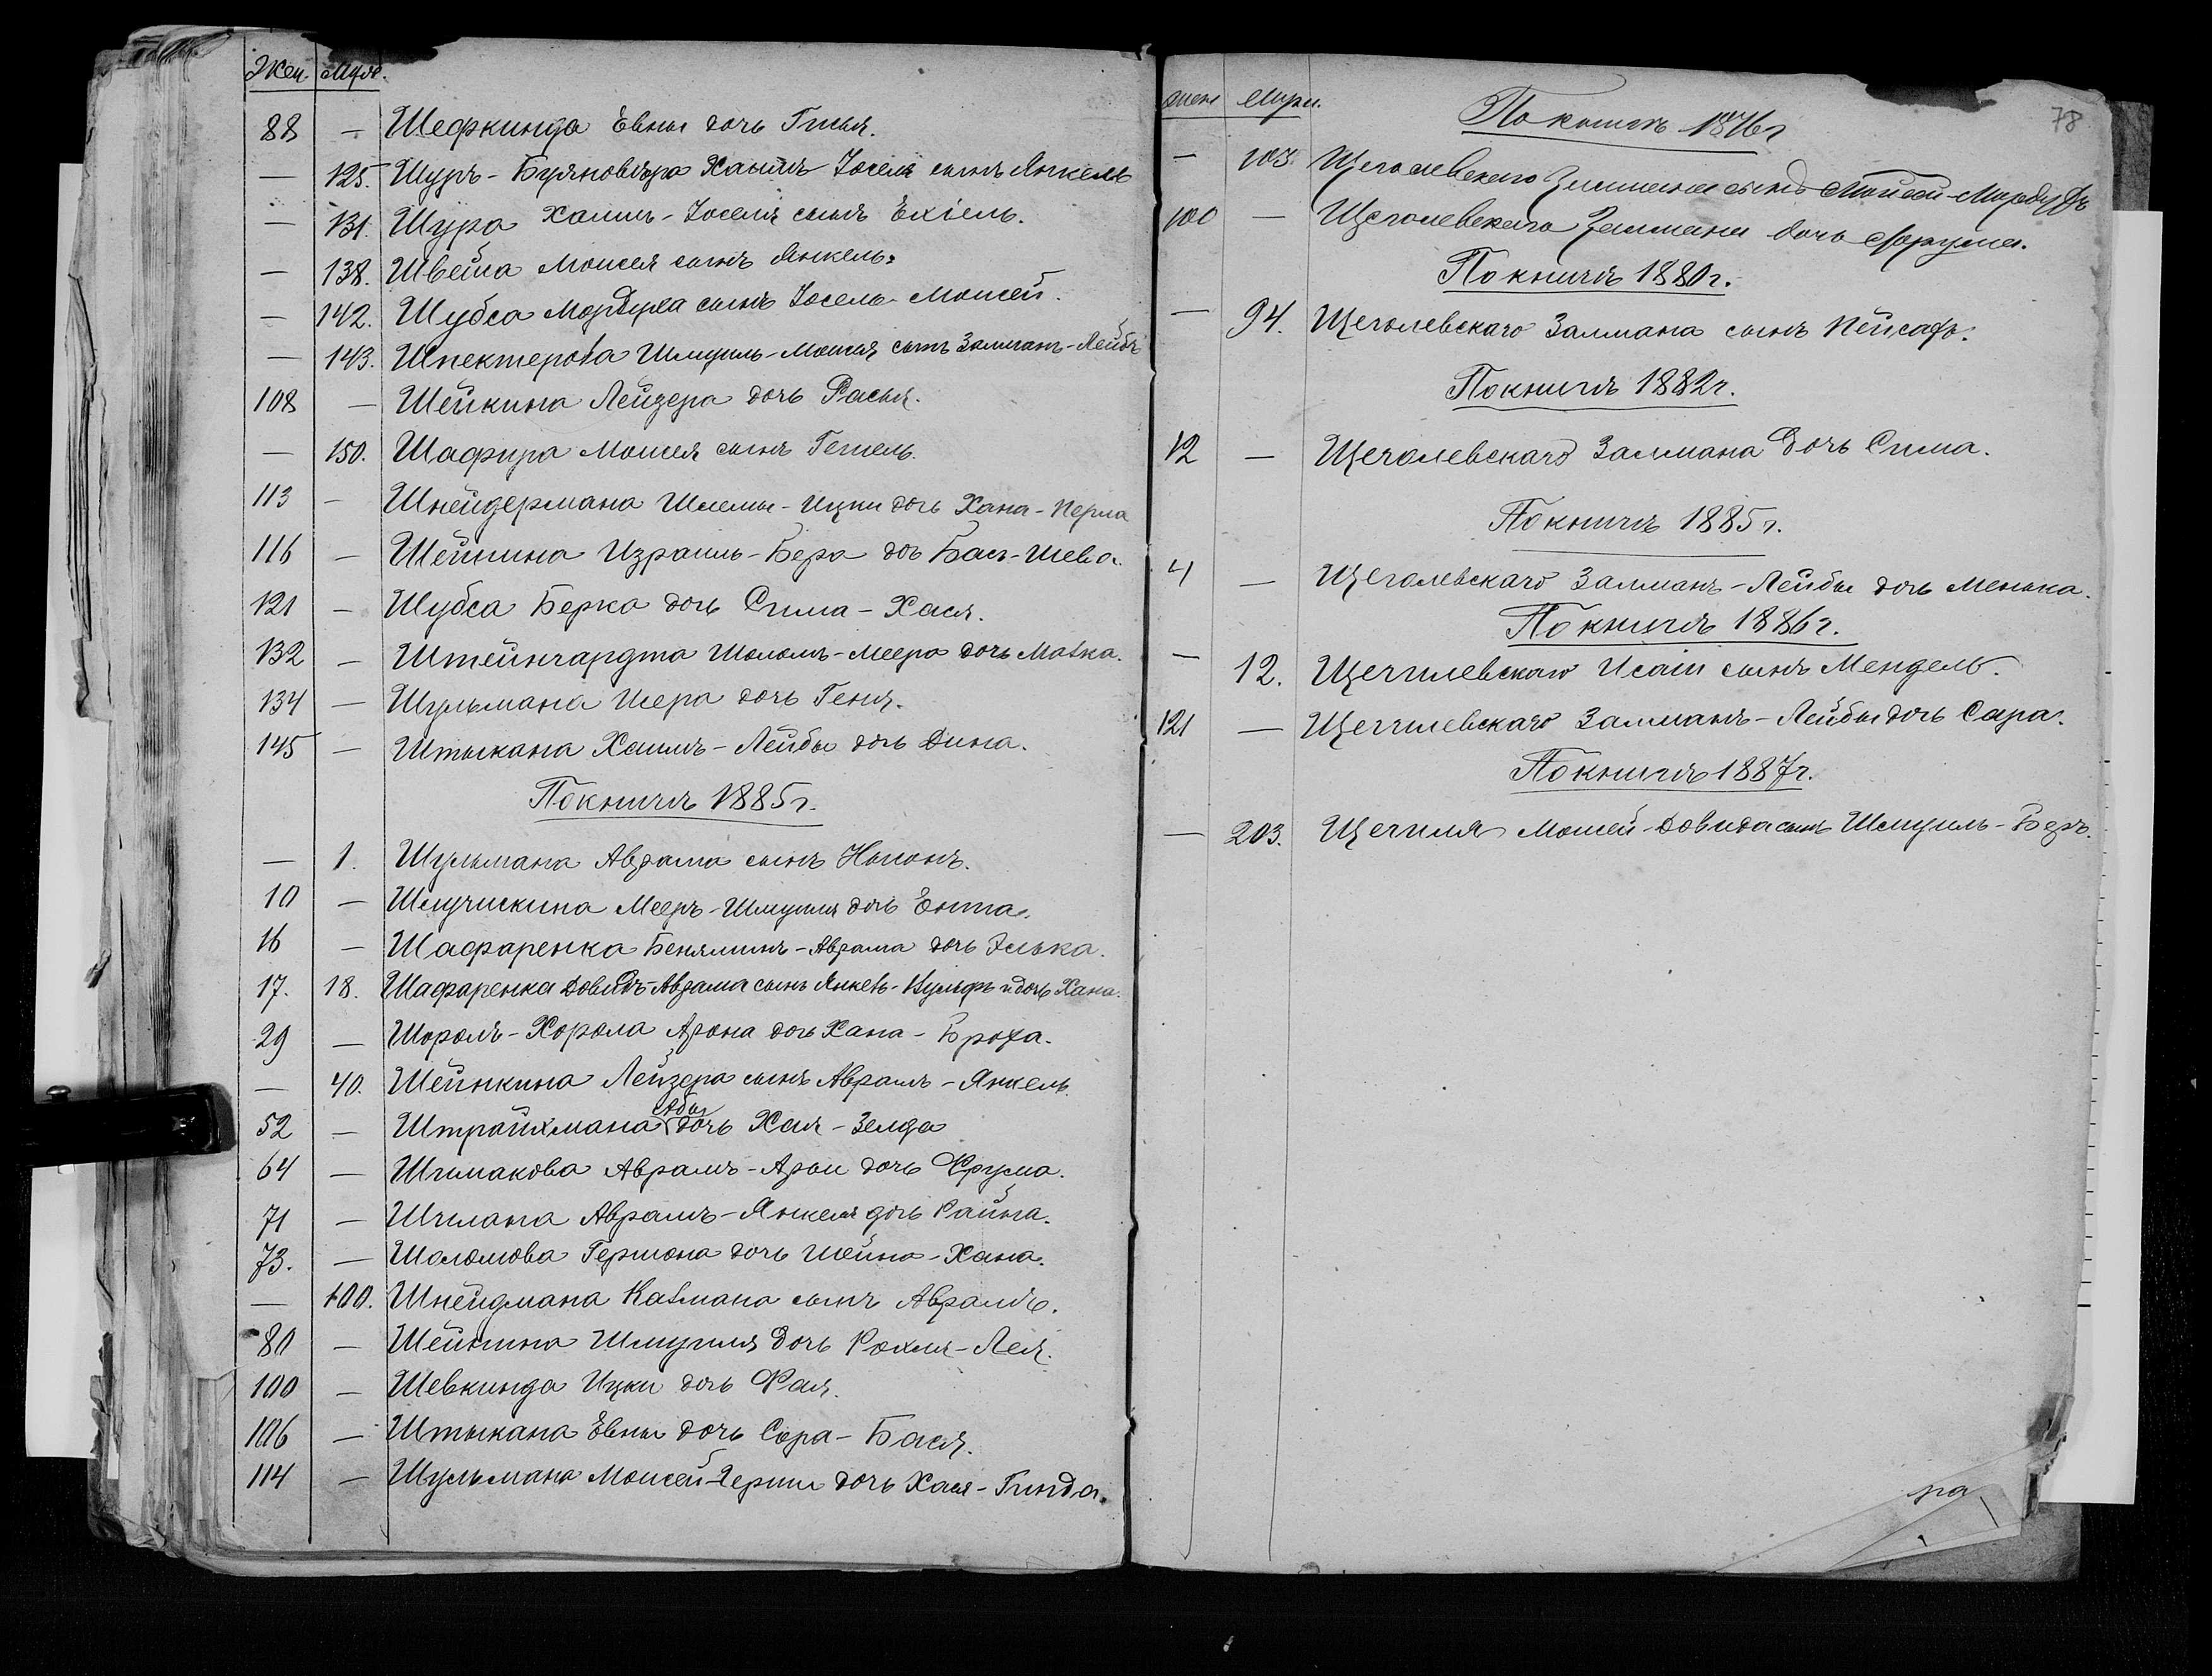 Жен. Муж.
88 — Шефкинда Евны дочь Гисья.
— 125. Шуръ - Буяновѣра Хаимъ Іоселя сынъ Янкель
— 131. Шура Хаимъ - Іоселя сынъ Ехіель.
— 138. Швейа Моисея сынъ Янкель.
— 142. Шубса Мордуха сынъ Іосель - Моисей.
— 143. Шпектерова Шмуиль - Моисея сынъ Залманъ - Лейбъ
108 — Шейкина Лейзера дочь Расья.
— 150. Шафира Моисея сынъ Гетель.
113 — Шнейдермана Шлемы - Ицки дочь Хана - Перла
116 — Шейнина Израиль - Бера доч Бас - Шева.
121 — Шубса Берка дочь Сима - Хася.
132 — Штейнгардта Шоломъ - Меера дочь Матка.
134 — Шульмана Шера дочь Геня.
145 — Штыкана Хаимъ - Лейбы дочь Дина.
По книгѣ 1885 г.
— 1. Шульмана Аврама сынъ Нононъ.
10 — Шлучискина Мееръ - Шмуиля дочь Ента.
16 — Шафаренка Беняминъ - Аврама дочь Элька.
17. 18. Шафаренка Довидъ - Аврама сынъ Янкевъ - Вульфъ и дочь Хана.
29 — Шороль - Хорола Арона дочь Хана - Броха.
— 40. Шейнкина Лейзера сынъ Абрамъ - Янкель.
Абы
52 — Штрайхмана дочь Хая - Зелда
64 — Шимакова Аврамъ - Арон дочь Фрума.
71 — Шилана Аврамъ - Янкеля дочь Райна.
73. — Шоломова Гершона дочь Шейна - Хана.
— 100. Шнейдмана Кавмана сынъ Абрамъ.
80 — Шейнина Шмуиля дочь Рохля - Лея.
100 — Шевкинда Ицки дочь Фая.
106 — Штыкана Евны дочь Сора - Бася.
114 — Шульмана Моисей - Герши дочь Хася - Гинда.
жен Мужч.
78
По книгѣ 1876 г
— 103. Щеголевскаго Залмана сынъ Мойсей - Мордухъ
100 — Щеголевскаго Залмана дочь Фрума.
По книгѣ 1880 г.
— 94. Щеголевскаго Залмана сынъ Пейсахъ.
По книгѣ 1882 г.
12 — Щеголевскаго Залмана дочь Сима.
По книгѣ 1885 г.
4 — Щеголевскаго Залманъ - Лейбы дочь Менька.
По книгѣ 1886 г.
— 12. Щегилевскаго Исаіи сынъ Мендель.
121 — Щегилевскаго Залманъ - Лейбы дочь Сара.
По книгѣ 1887 г.
— 203. Щегиля Мошей - Довида сынъ Шмуиль - Беръ.
ра